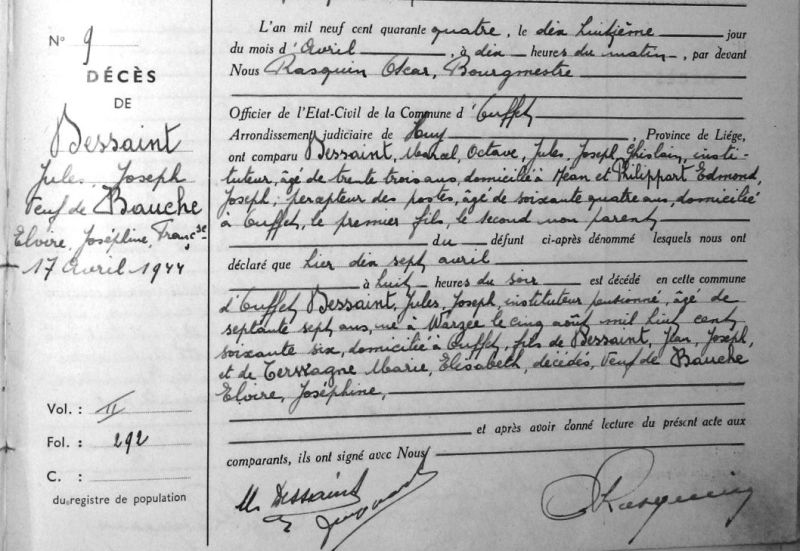 N° 9
DÉCÈS
DE
Dessaint
Jules, Joseph
Veuf de Bauche
Elvire, Joséphine, Franç.se
17 Avril 1944
Vol. : II
Fol. : 292
C. :
du registre de population
L'an mil neuf cent quarante quatre, le dix huitième jour
du mois d'Avril, à dix heures du matin, par devant
Nous Rasquin Oscar, Bourgmestre
Officier de l'Etat-Civil de la Commune d'Ouffet
Arrondissement judiciaire de Huy, Province de Liége,
ont comparu Dessaint, Marcel, Octave, Jules, Joseph, Ghislain, insti-
tuteur, âgé de trente trois ans, domicilié à Méan et Philippart Edmond,
Joseph, percepteur des postes, âgé de soixante quatre ans, domicilié
à Ouffet, le premier fils, le second non parent
du défunt ci-après dénommé lesquels nous ont
déclaré que hier dix sept avril
à huit heures du soir est décédé en cette commune
d'Ouffet Dessaint, Jules, Joseph, instituteur pensionné, âgé de
septante sept ans, né à Warzée le cinq août mil huit cent
soixante six, domicilié à Ouffet, fils de Dessaint, Jean, Joseph,
et de Terwagne Marie, Elisabeth, décédés, Veuf de Bauche
Elvire, Joséphine,
et après avoir donné lecture du présent acte aux
comparants, ils ont signé avec Nous
M. Dessaint
Rasquin